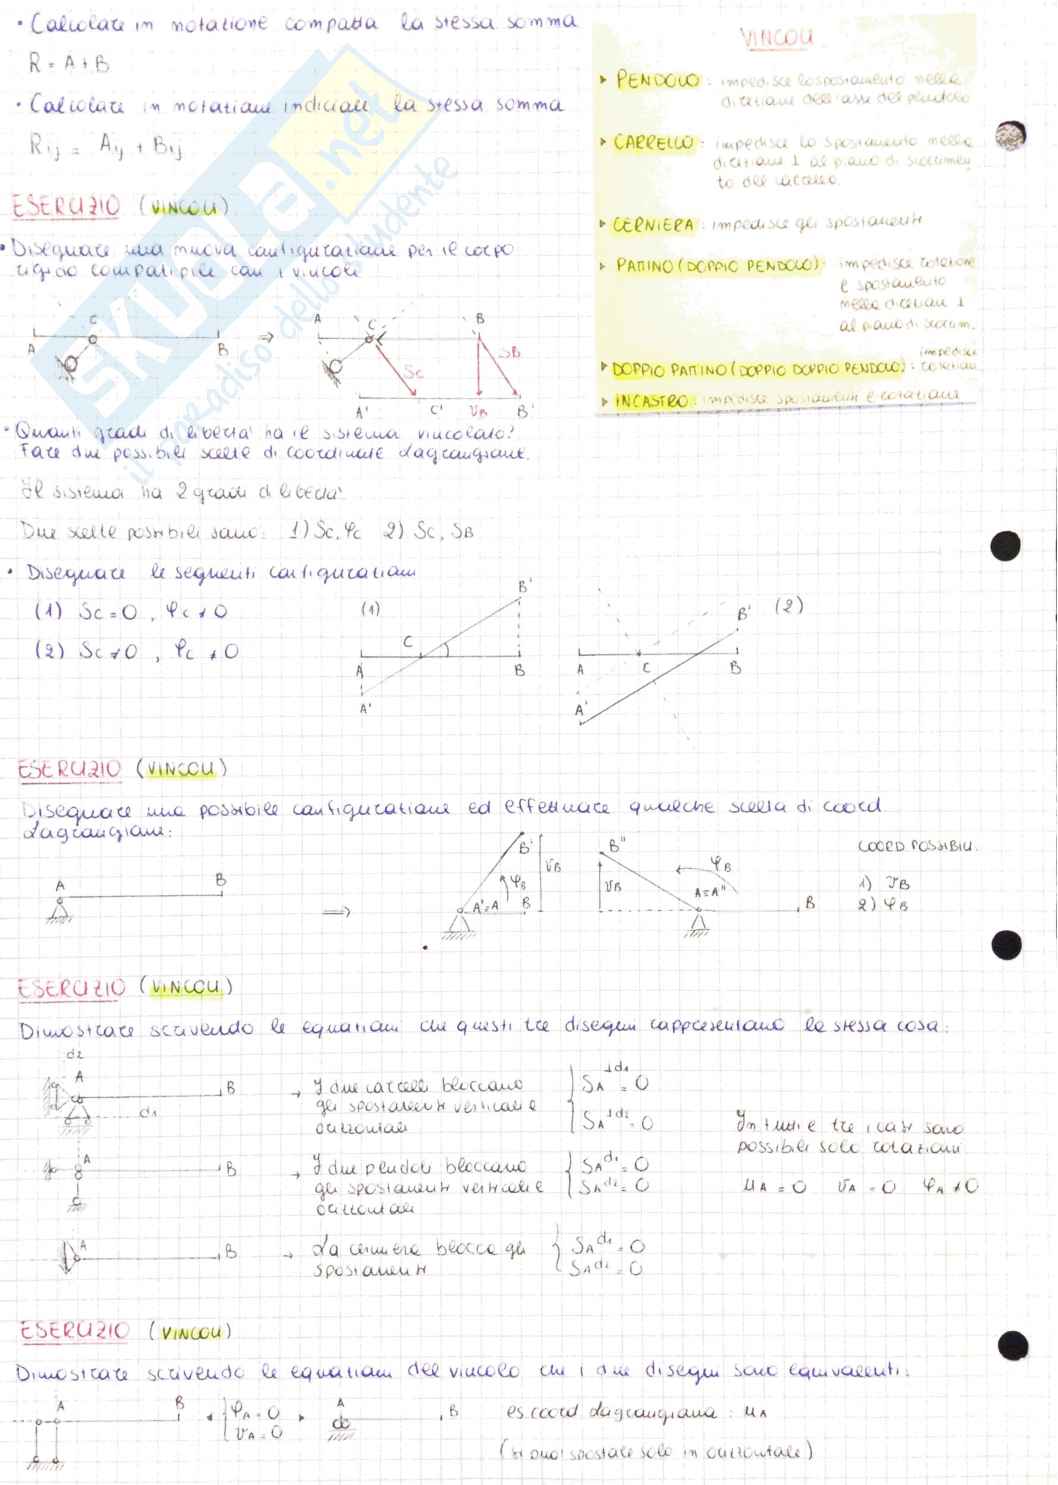 • Calcolare in notazione compatta la stessa somma
R = A + B
• Calcolare in notazione indiciale la stessa somma
Rij = Aij + Bij
VINCOLI
▸ PENDOLO: impedisce lo spostamento nella
direzione dell'asse del pendolo
▸ CARRELLO: impedisce lo spostamento nella
direzione ⊥ al piano di scorrimen
to del carrello.
▸ CERNIERA: impedisce gli spostamenti
▸ PATTINO (DOPPIO PENDOLO): impedisce rotazione
e spostamento
nella direzion ⊥
al piano di scorrim.
▸ DOPPIO PATTINO (DOPPIO DOPPIO PENDOLO): impedisce
rotazion
▸ INCASTRO: impedisce spostamenti e rotazione
SKUOLA.net
il paradiso dello studente
ESERCIZIO (VINCOLI)
• Disegnare una nuova configurazione per il corpo
rigido compatibile con i vincoli
A C B ⇒ A C B
Sc SB
A' C' VB B'
• Quanti gradi di libertà ha il sistema vincolato?
Fare due possibili scelte di coordinate Lagrangiane.
Il sistema ha 2 gradi di libertà
Due scelte possibili sono: 1) Sc, φc 2) Sc, SB
• Disegnare le seguenti configurazioni
(1) Sc = 0, φc ≠ 0
(2) Sc ≠ 0, φc ≠ 0
(1) A C B A' B'
(2) A C B A' B'
ESERCIZIO (VINCOLI)
Disegnare una possibile configurazione ed effettuare qualche scelta di coord
Lagrangiane:
A B ⇒ A'=A B B' φB VB
B'' VB φB A=A'' B
COORD. POSSIBILI.
1) VB
2) φB
ESERCIZIO (VINCOLI)
Dimostrare scrivendo le equazioni che questi tre disegni rappresentano la stessa cosa:
d2 A B d1
→ I due carrelli bloccano
gli spostamenti verticali e
orizzontali
{ SA⊥d1 = 0
SA⊥d2 = 0
A B
→ I due pendoli bloccano
gli spostamenti verticali e
orizzontali
{ SAd1 = 0
SAd2 = 0
In tutti e tre i casi sono
possibili solo rotazioni
uA = 0 vA = 0 φA ≠ 0
A B
→ La cerniera blocca gli
spostamenti
{ SAd1 = 0
SAd2 = 0
ESERCIZIO (VINCOLI)
Dimostrare scrivendo le equazioni del vincolo che i due disegni sono equivalenti:
A B { φA = 0
vA = 0
A B
es. coord Lagrangiana: uA
(si può spostare solo in orizzontale)